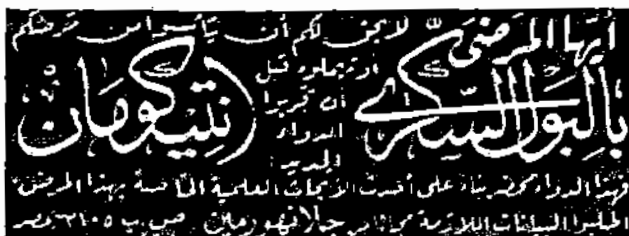 أيها المرضى
بالبول السكري
لا يحق لكم أن تيأسوا من مرضكم
أو تهملوه قبل
أن تجربوا
الدواء
الجديد:
(انتيكومان)
فهذا الدواء محضر بناء على أحدث الأبحاث العلمية الخاصة بهذا المرض
اطلبوا البيانات اللازمة مجانا من جلانهورمين ص. ب ٢١٠٥ مصر